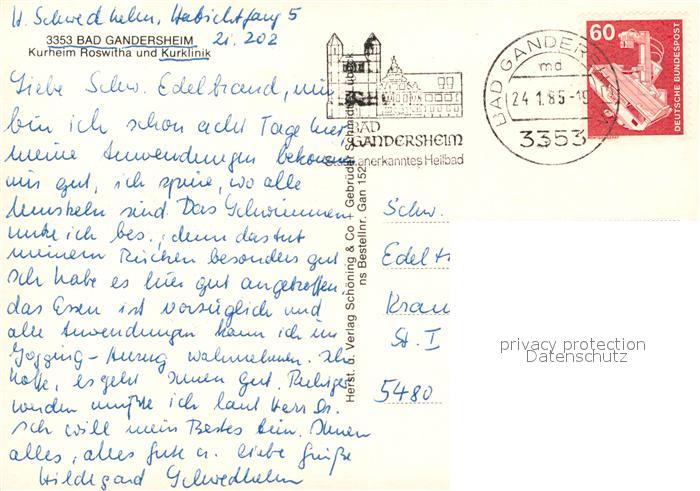 H. Schwedhelm, Habichtfang 5
3353 BAD GANDERSHEIM
Zi. 202
Kurheim Roswitha und Kurklinik
Liebe Schw. Edeltraud, nun
bin ich schon acht Tage hier,
meine Anwendungen bekommen
mir gut, ich spüre, wo alle
Muskeln sind. Das Schwimmen
nutze ich bes., denn das tut
meinem Rücken besonders gut
Ich habe es hier gut angetroffen,
das Essen ist vorzüglich und
alle Anwendungen kann ich im
Jogging-Anzug wahrnehmen. Ich
hoffe, es geht Ihnen gut. Ruhiger
werden müßte ich laut Herr Dr.
Ich will mein Bestes tun. Ihnen
alles, alles Gute u. liebe Grüße
Hildegard Schwedhelm
BAD
GANDERSHEIM
Staatl. anerkanntes Heilbad
BAD GANDER
md
24.1.85-19
3353
60
DEUTSCHE BUNDESPOST
Herst. u. Verlag Schöning & Co + Gebrüder Schmidt
Bestellnr. Gan 152
Schw.
Edelt
Kran
St. I
5480
privacy protection
Datenschutz